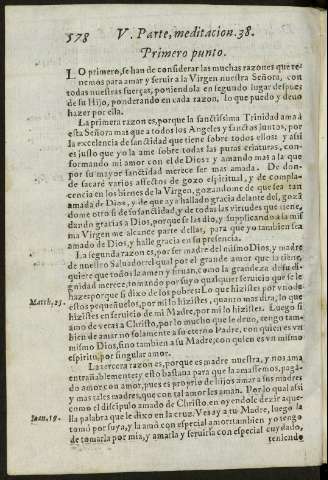 578 V. Parte, meditacion. 38.
Primero punto.
LO primero, se han de considerar las muchas razones que te-
nemos para amar y seruir a la Virgen nuestra Señora, con
todas nuestras fuerças, poniendola en segundo lugar despues
de su Hijo, ponderando en cada razon, lo que puedo y deuo
hazer por ella.
La primera razon es, porque la sanctissima Trinidad ama à
esta Señora mas que a todos los Angeles y sanctos juntos, por
la excelencia de sanctidad que tiene sobre todos ellos: y assi
es justo que yo la ame sobre todas las puras criaturas, con-
formando mi amor con el de Dios: y amando mas a la que
por su mayor sanctidad merece ser mas amada. De don-
de sacaré varios affectos de gozo espiritual, y de compla-
cencia en los bienes de la Virgen, gozandome de que sea tan
amada de Dios, y de que aya hallado gracia delante del, gozã
dome otro si de su sanctidad, y de todas las virtudes que tiene,
dando gracias a Dios, porque se las dio, y supplicando a la mis
ma Virgen me alcance parte dellas, para que yo tambien sea
amado de Dios, y halle gracia en su presencia.
La segunda razon es, por ser madre del mismo Dios, y madre
de nuestro Saluador el qual por el grande amor que la tiene,
quiere que todos la amen y siruan, como la grandeza de su di-
gnidad merece, tomando por suyo qualquier seruicio que se le
haze: porque si dixo de los pobres: Lo que hizistes por vno de
Matth. 25. estos pequeñuelos, por mi lo hizistes, quanto mas dira, lo que
hizistes en seruicio de mi Madre, por mi lo hizistes. Luego si
amo de veras a Christo, por lo mucho que le deuo, tengo tam-
bien de amar no solamente a su eterno Padre, con quien es vn
mismo Dios, sino tambien a su Madre, con quien es vn mismo
espiritu, por singular amor.
La tercera razon es, porque es madre nuestra, y nos ama
entrañablemente, y esto bastaua para que la amassemos, pagã-
do amor con amor, pues es proprio de hijos amar a sus madres
y mas tales madres, que con tal amor les aman. Por lo qual assi
como el discipulo amado de Christo, en oyendole dezir aque-
Ioan. 19. lla palabra que le dixo en la cruz. Ves ay a tu Madre, luego la
tomó por suya, y la amó con especial amor: tambien yo tengo
de tomarla por mia, y amarla y seruirla con especial cuydado,
teniendo